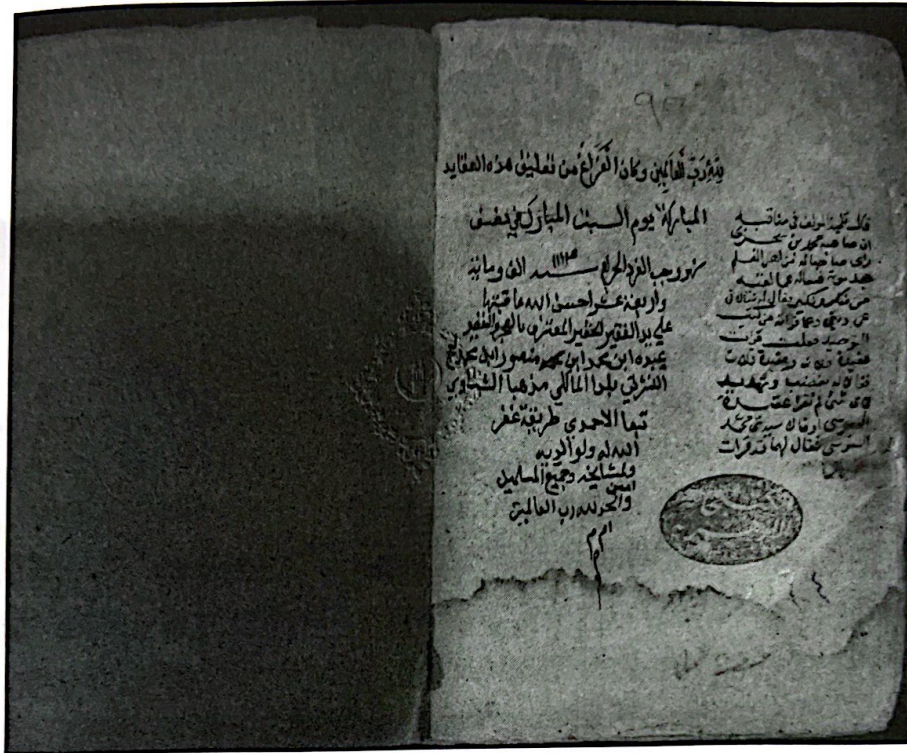 لله رب العالمين وكان الفراغ من تعليق هذه العقايد
المباركة يوم السبت المبارك في نصف
شهر رجب الفرد الحرام سنة الف وماية
واربعة عشر احسن الله عاقبتها
علي يد الفقير الحقير المعترف بالعجز والتقصير
عبده ابن محمد ابن محمد منصور ابن
بلدا المالكي مذهبا الشناوي
تبعا الاحمدي طريقة غفر
الله له ولوالديه
ولمشايخه وجميع المسلمين
امين
والحمد لله رب العالمين
م م م
قال تلميذ المولف في مناقبه
ان صاحبه محمد بن
راي صاحبا له من اهل العلم
بعد موته فساله عما لقيه
من منكر ونكير فقال
عن ديني وما قراته من كتب
التوحيد فقلت قرات
عقيدة فلان وعقيدة فلان
فقالا له بغضب وتهديد
لاي شي لم تقرا عقيدة
السنوسي او قال سيدي محمد
السنوسي فقال لهما قد قرات